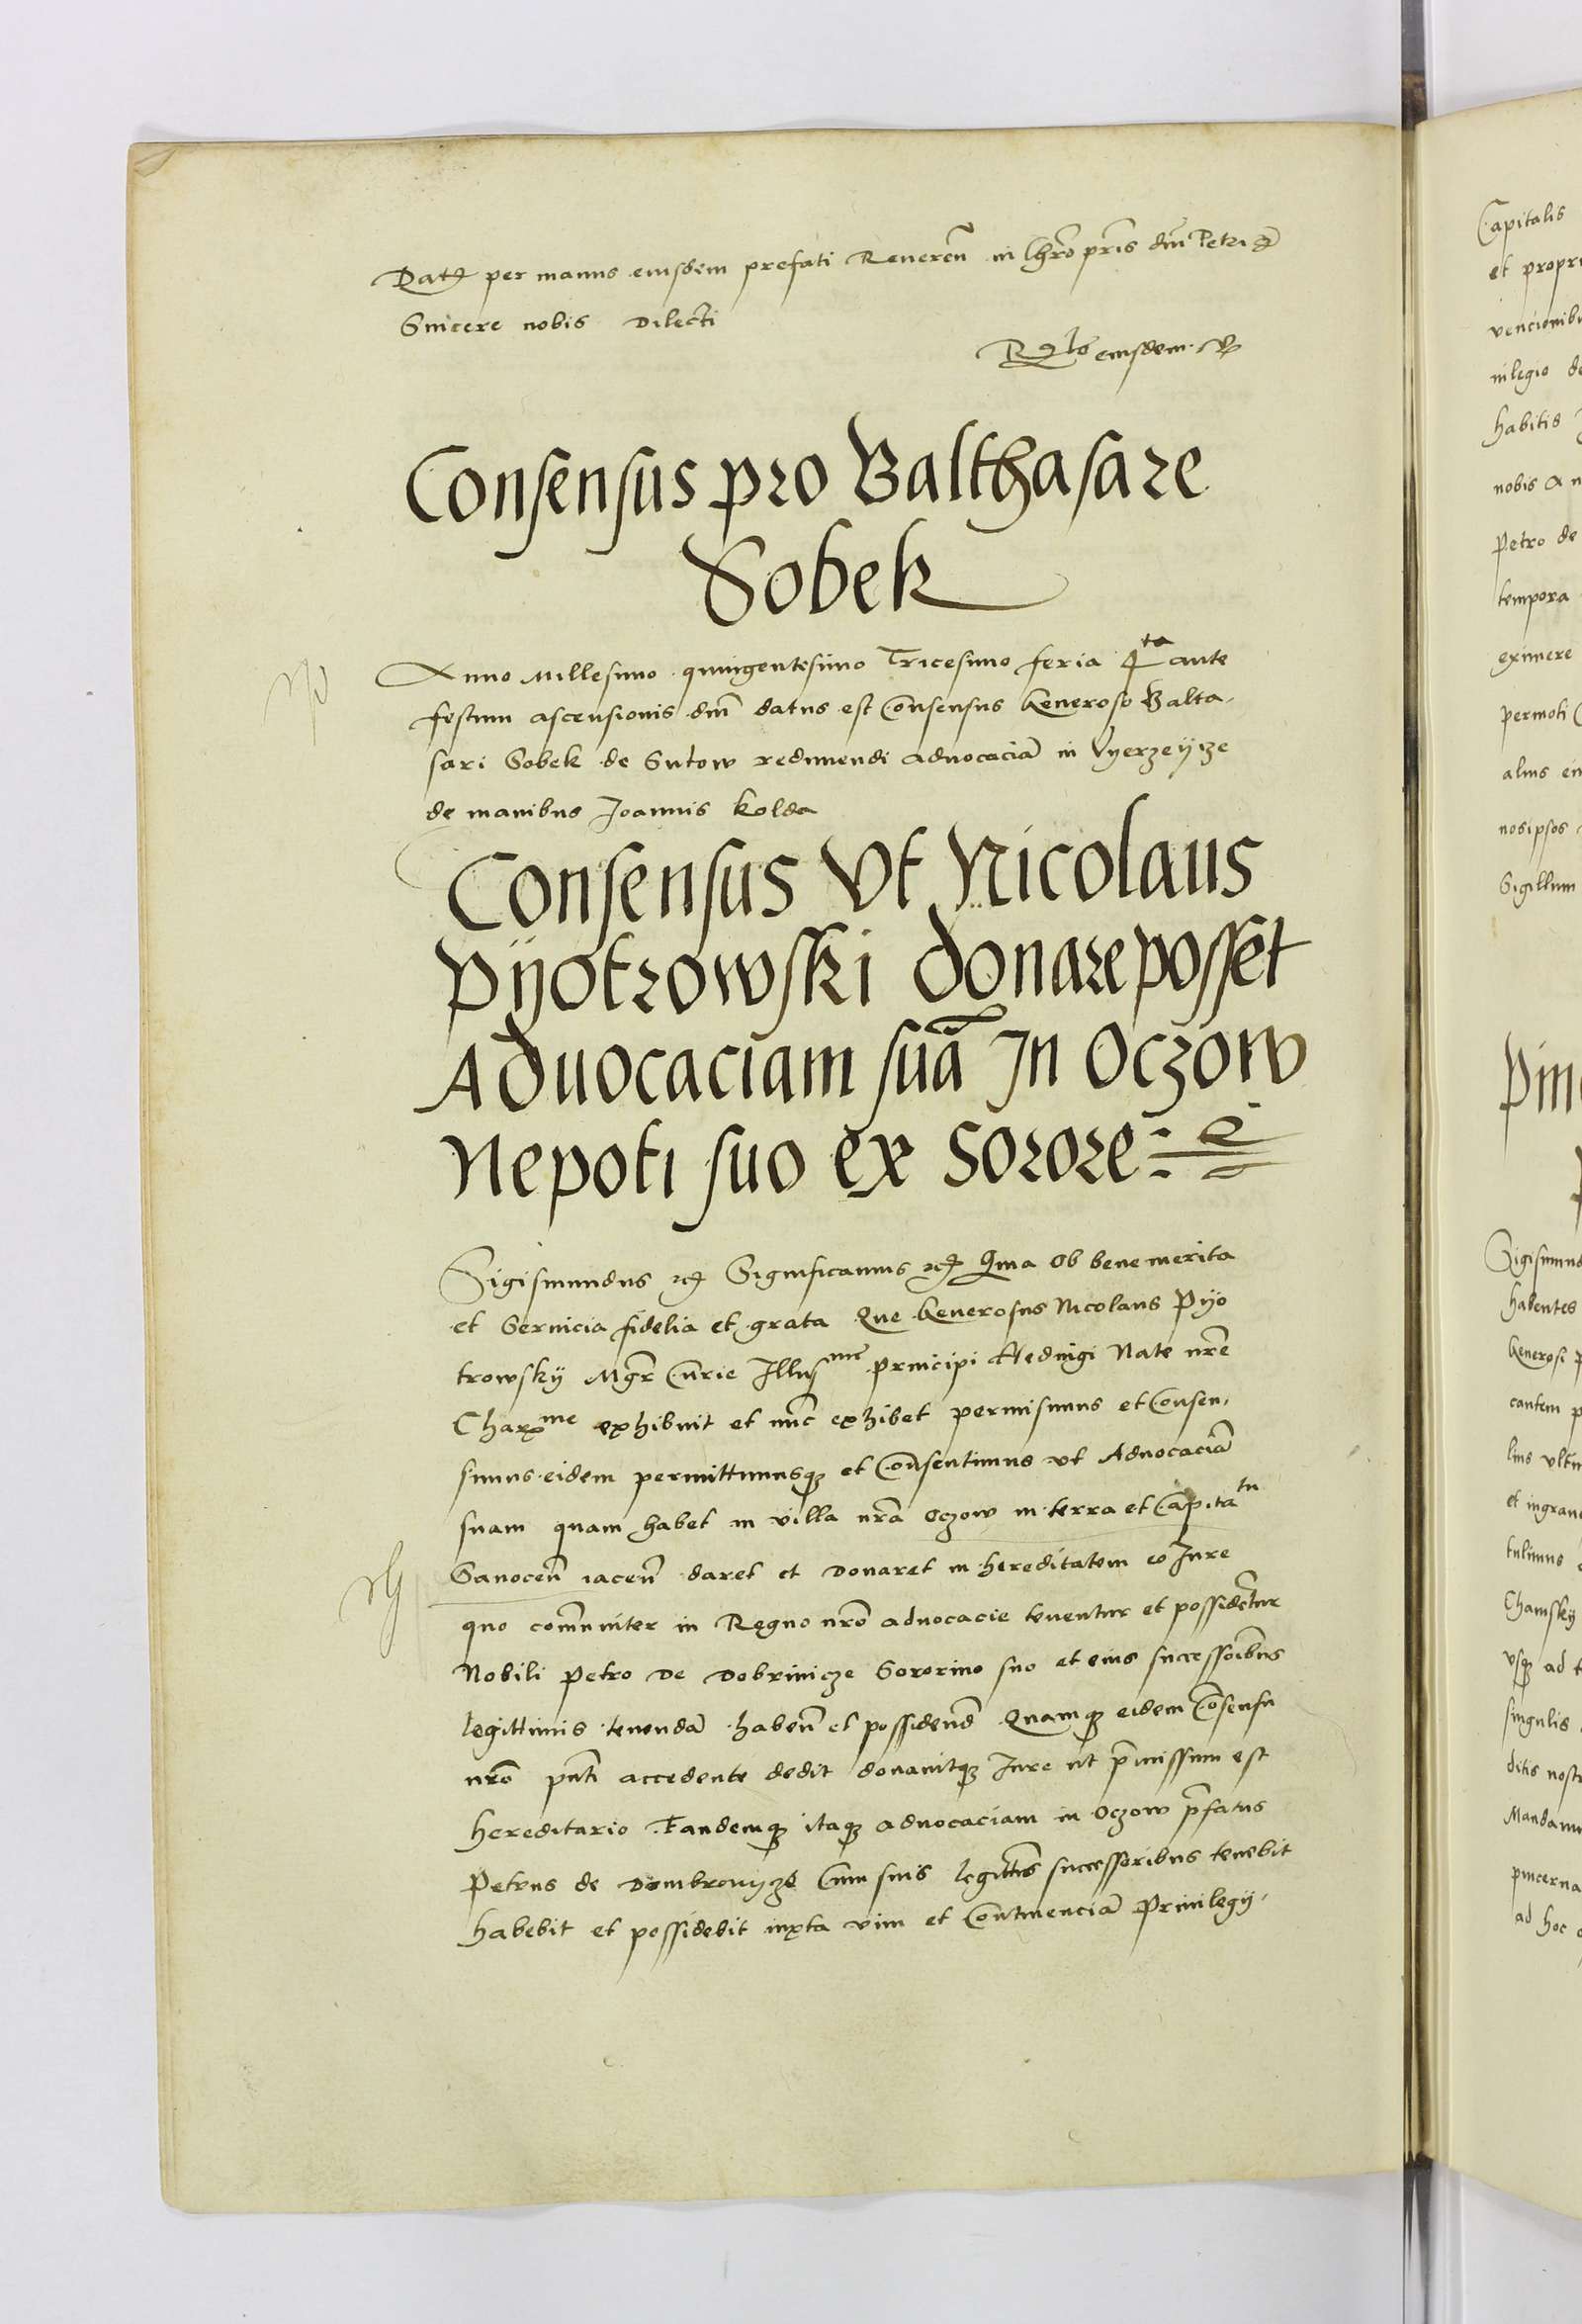 Dat% per manus eiusdem prefati Reueren̄ in Chr̄o pr̄is dn̄i Petri
Sincere nobis Dilecti
R͠lo eiusdem
Consensus pro Balthasare
Sobek
Anno Millesimo quingentesimo Tricesimo feria 4ta ante
festum ascensionis dn̄i datus est Consensus Generoso Balta
sari Sobek de Sulow redimendi aduocaciā in Vyerzeijcze
de manibus Joannis Kolda
Consensus Vt Nicolaus
Pÿotrowski donare posset
Aduocaciam suā In Oczow
Nepoti suo ex Sorore
Sigismundus etc Significamus etc Quia Ob benemerita
et Seruicia fidelia et grata Que Generosus Nicolaus Pÿo
trowskÿ Mgr̄ Curie Illusme principi Hedwigi Nate nr̄e
Charxme exhibuit et nūc exhibet permisimus et Consen
simus eidem permittimusq; et Consentimus vt Aduocaciā
suam quam habet in villa nr̄a Oczow in terra et Capitatu
Sanoceñ iaceñ daret et Donaret in hereditatem eo Iure
quo com̄uniter in Regno nr̄o aduocacie tenentur et possidentur
Nobili Petro De Dobrinicze Sororino suo et eius successoribus
legittimis tenendā habeñ et possidend̄ Quamq; eidem Cōsensu
nr̄o pn̄ti accedente dedit donauitq; Iure ut p̄missum est
hereditario Eandemq; itaq; aduocaciam in Oczow p̄fatus
Petrus de Dombrouijcze Cum suis legittīs successoribus tenebit
habebit et possidebit iuxta vim et Continenciā Priuilegij
Capitalis
et propri
vencionibu
uilegio de
habitis
nobis &
Petro de
tempora
eximere
permoti
alius
nosipsos
Sigillum
Pin
Sigismund
habentes
Generosi
cantem
lius vltim
et ingran
tulimus
Chamskÿ
vsq; ad
singulis
ditis nost
Mandamu
pincerna
ad hoc